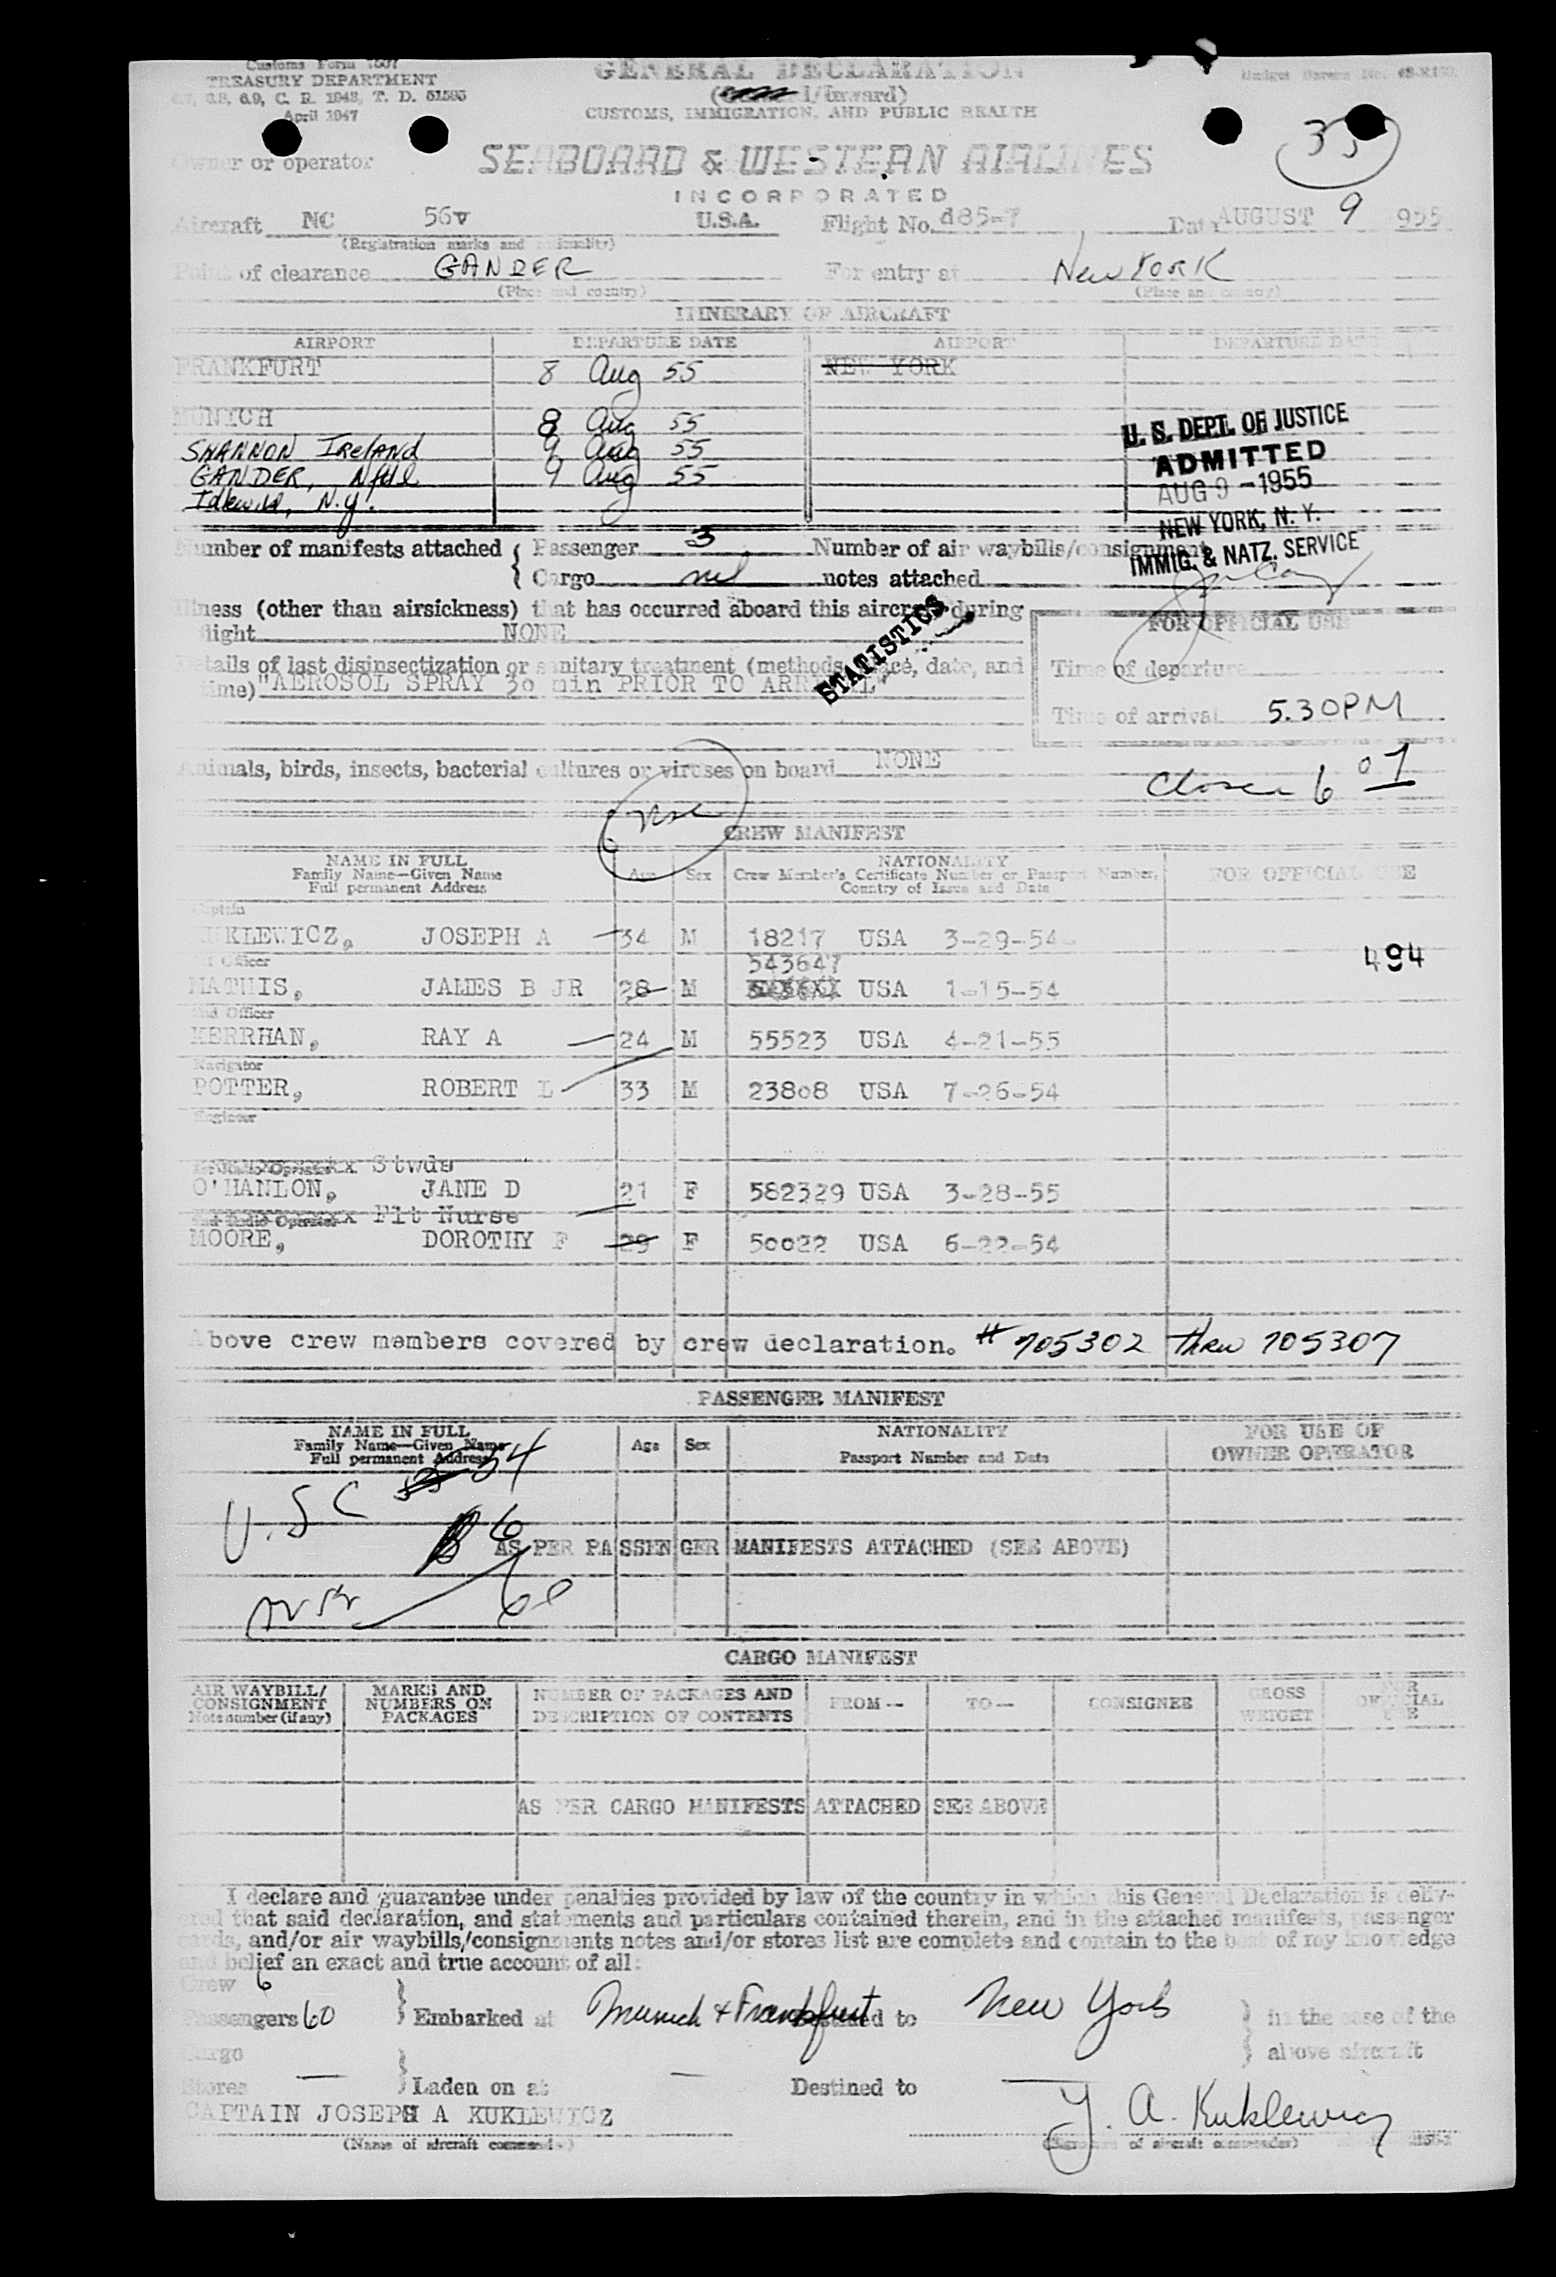 Customs Form 7507
TREASURY DEPARTMENT
6.7, 6.8, 6.9, C. R. 1943, T. D. 51595
April 1947
GENERAL DECLARATION
(Outward/Inward)
CUSTOMS, IMMIGRATION, AND PUBLIC HEALTH
Budget Bureau No.
35
Owner or operator
SEABOARD & WESTERN AIRLINES
INCORPORATED
Aircraft NC 56v U.S.A. Flight No. d85-7 Date AUGUST 9 1955
(Registration marks and nationality)
Point of clearance GANDER For entry at New York
(Place and country) (Place and country)
ITINERARY OF AIRCRAFT
AIRPORT DEPARTURE DATE AIRPORT DEPARTURE DATE
FRANKFURT 8 Aug 55 NEW YORK
MUNICH 8 Aug 55
SHANNON Ireland 9 Aug 55
GANDER, Nfld 9 Aug 55
Idlewild, N.Y.
U. S. DEPT. OF JUSTICE
ADMITTED
AUG 9 - 1955
NEW YORK, N. Y.
IMMIG. & NATZ. SERVICE
Number of manifests attached { Passenger 3 Number of air waybills/consignment
Cargo nil notes attached
Illness (other than airsickness) that has occurred aboard this aircraft during
flight NONE
STATISTICS
FOR OFFICIAL USE
Details of last disinsectization or sanitary treatment (methods, place, date, and
time) "AEROSOL SPRAY 30 min PRIOR TO ARRIVAL"
Time of departure
Time of arrival 5.30PM
Animals, birds, insects, bacterial cultures or viruses on board NONE
Closed 6 07
CREW MANIFEST
NAME IN FULL
Family Name—Given Name
Full permanent Address
Age Sex
NATIONALITY
Crew Member's Certificate Number or Passport Number,
Country of Issue and Date
FOR OFFICIAL USE
Captain
KUKLEWICZ, JOSEPH A 34 M 18217 USA 3-29-54
1st Officer 543647
MATHIS, JAMES B JR 28 M USA 1-15-54
494
2nd Officer
KERRHAN, RAY A 24 M 55523 USA 4-21-55
Navigator
POTTER, ROBERT L 33 M 23808 USA 7-26-54
Engineer
1st Radio Operator Stwds
O'HANLON, JANE D 21 F 582329 USA 3-28-55
2nd Radio Operator Flt Nurse
MOORE, DOROTHY F 29 F 50022 USA 6-22-54
Above crew members covered by crew declaration. # 705302 thru 705307
PASSENGER MANIFEST
NAME IN FULL
Family Name—Given Name
Full permanent Address
Age Sex
NATIONALITY
Passport Number and Date
FOR USE OF
OWNER OPERATOR
U.S.C 54
6
AS PER PASSENGER MANIFESTS ATTACHED (SEE ABOVE)
60
CARGO MANIFEST
AIR WAYBILL/
CONSIGNMENT
Note number (if any)
MARKS AND
NUMBERS ON
PACKAGES
NUMBER OF PACKAGES AND
DESCRIPTION OF CONTENTS
FROM— TO— CONSIGNEE
GROSS
WEIGHT
FOR
OFFICIAL
USE
AS PER CARGO MANIFESTS ATTACHED SEE ABOVE
I declare and guarantee under penalties provided by law of the country in which this General Declaration is deliv-
ered that said declaration, and statements and particulars contained therein, and in the attached manifests, passenger
cards, and/or air waybills/consignments notes and/or stores list are complete and contain to the best of my knowledge
and belief an exact and true account of all:
Crew 6
Passengers 60 } Embarked at Munich & Frankfurt Destined to New York } in the case of the
Cargo above aircraft
Stores — } Laden on at — Destined to —
CAPTAIN JOSEPH A KUKLEWICZ J. A. Kuklewicz
(Name of aircraft commander) (Signature of aircraft commander)